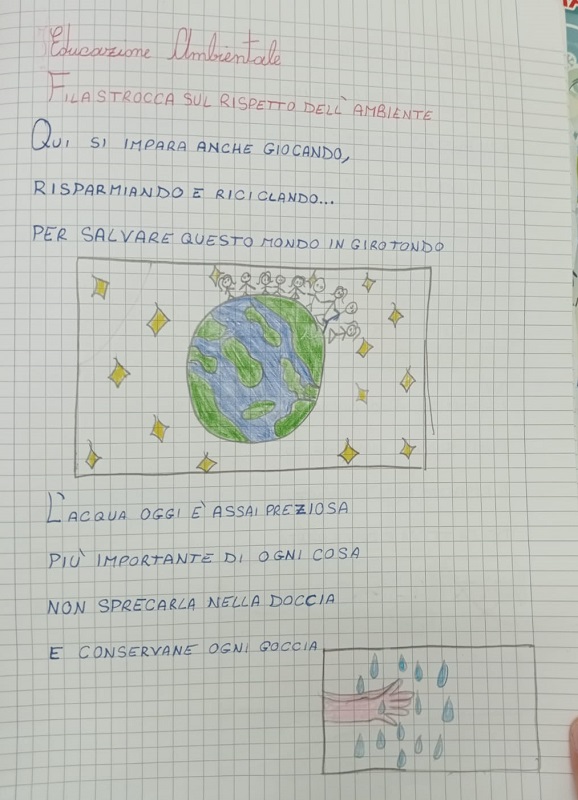 Educazione Ambientale
FILASTROCCA SUL RISPETTO DELL'AMBIENTE
QUI SI IMPARA ANCHE GIOCANDO,
RISPARMIANDO E RICICLANDO...
PER SALVARE QUESTO MONDO IN GIROTONDO
L'ACQUA OGGI E' ASSAI PREZIOSA
PIU' IMPORTANTE DI OGNI COSA
NON SPRECARLA NELLA DOCCIA
E CONSERVANE OGNI GOCCIA